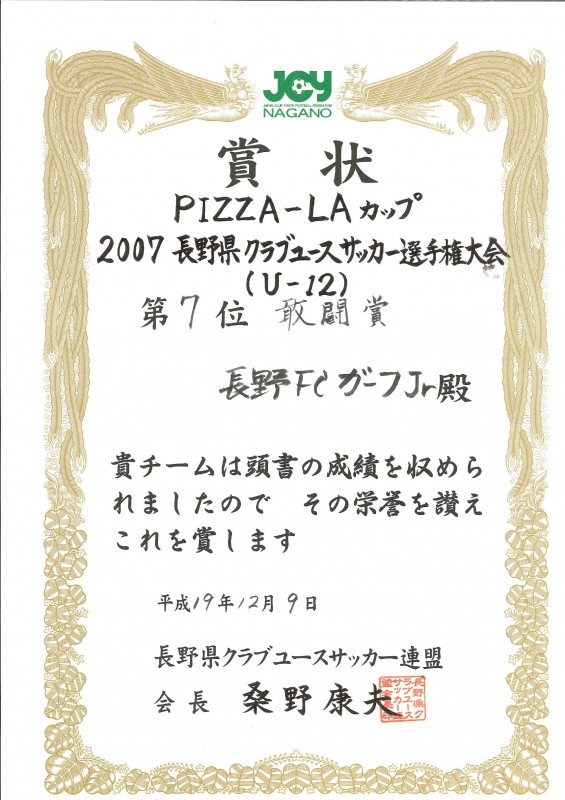 JCY
JAPAN CLUB YOUTH FOOTBALL FEDERATION
NAGANO
賞状
PIZZA-LAカップ
2007 長野県クラブユースサッカー選手権大会
(U-12)
第7位 敢闘賞
長野FCガーフJr殿
貴チームは頭書の成績を収めら
れましたので その栄誉を讃え
これを賞します
平成19年12月9日
長野県クラブユースサッカー連盟
会長 桑野康夫